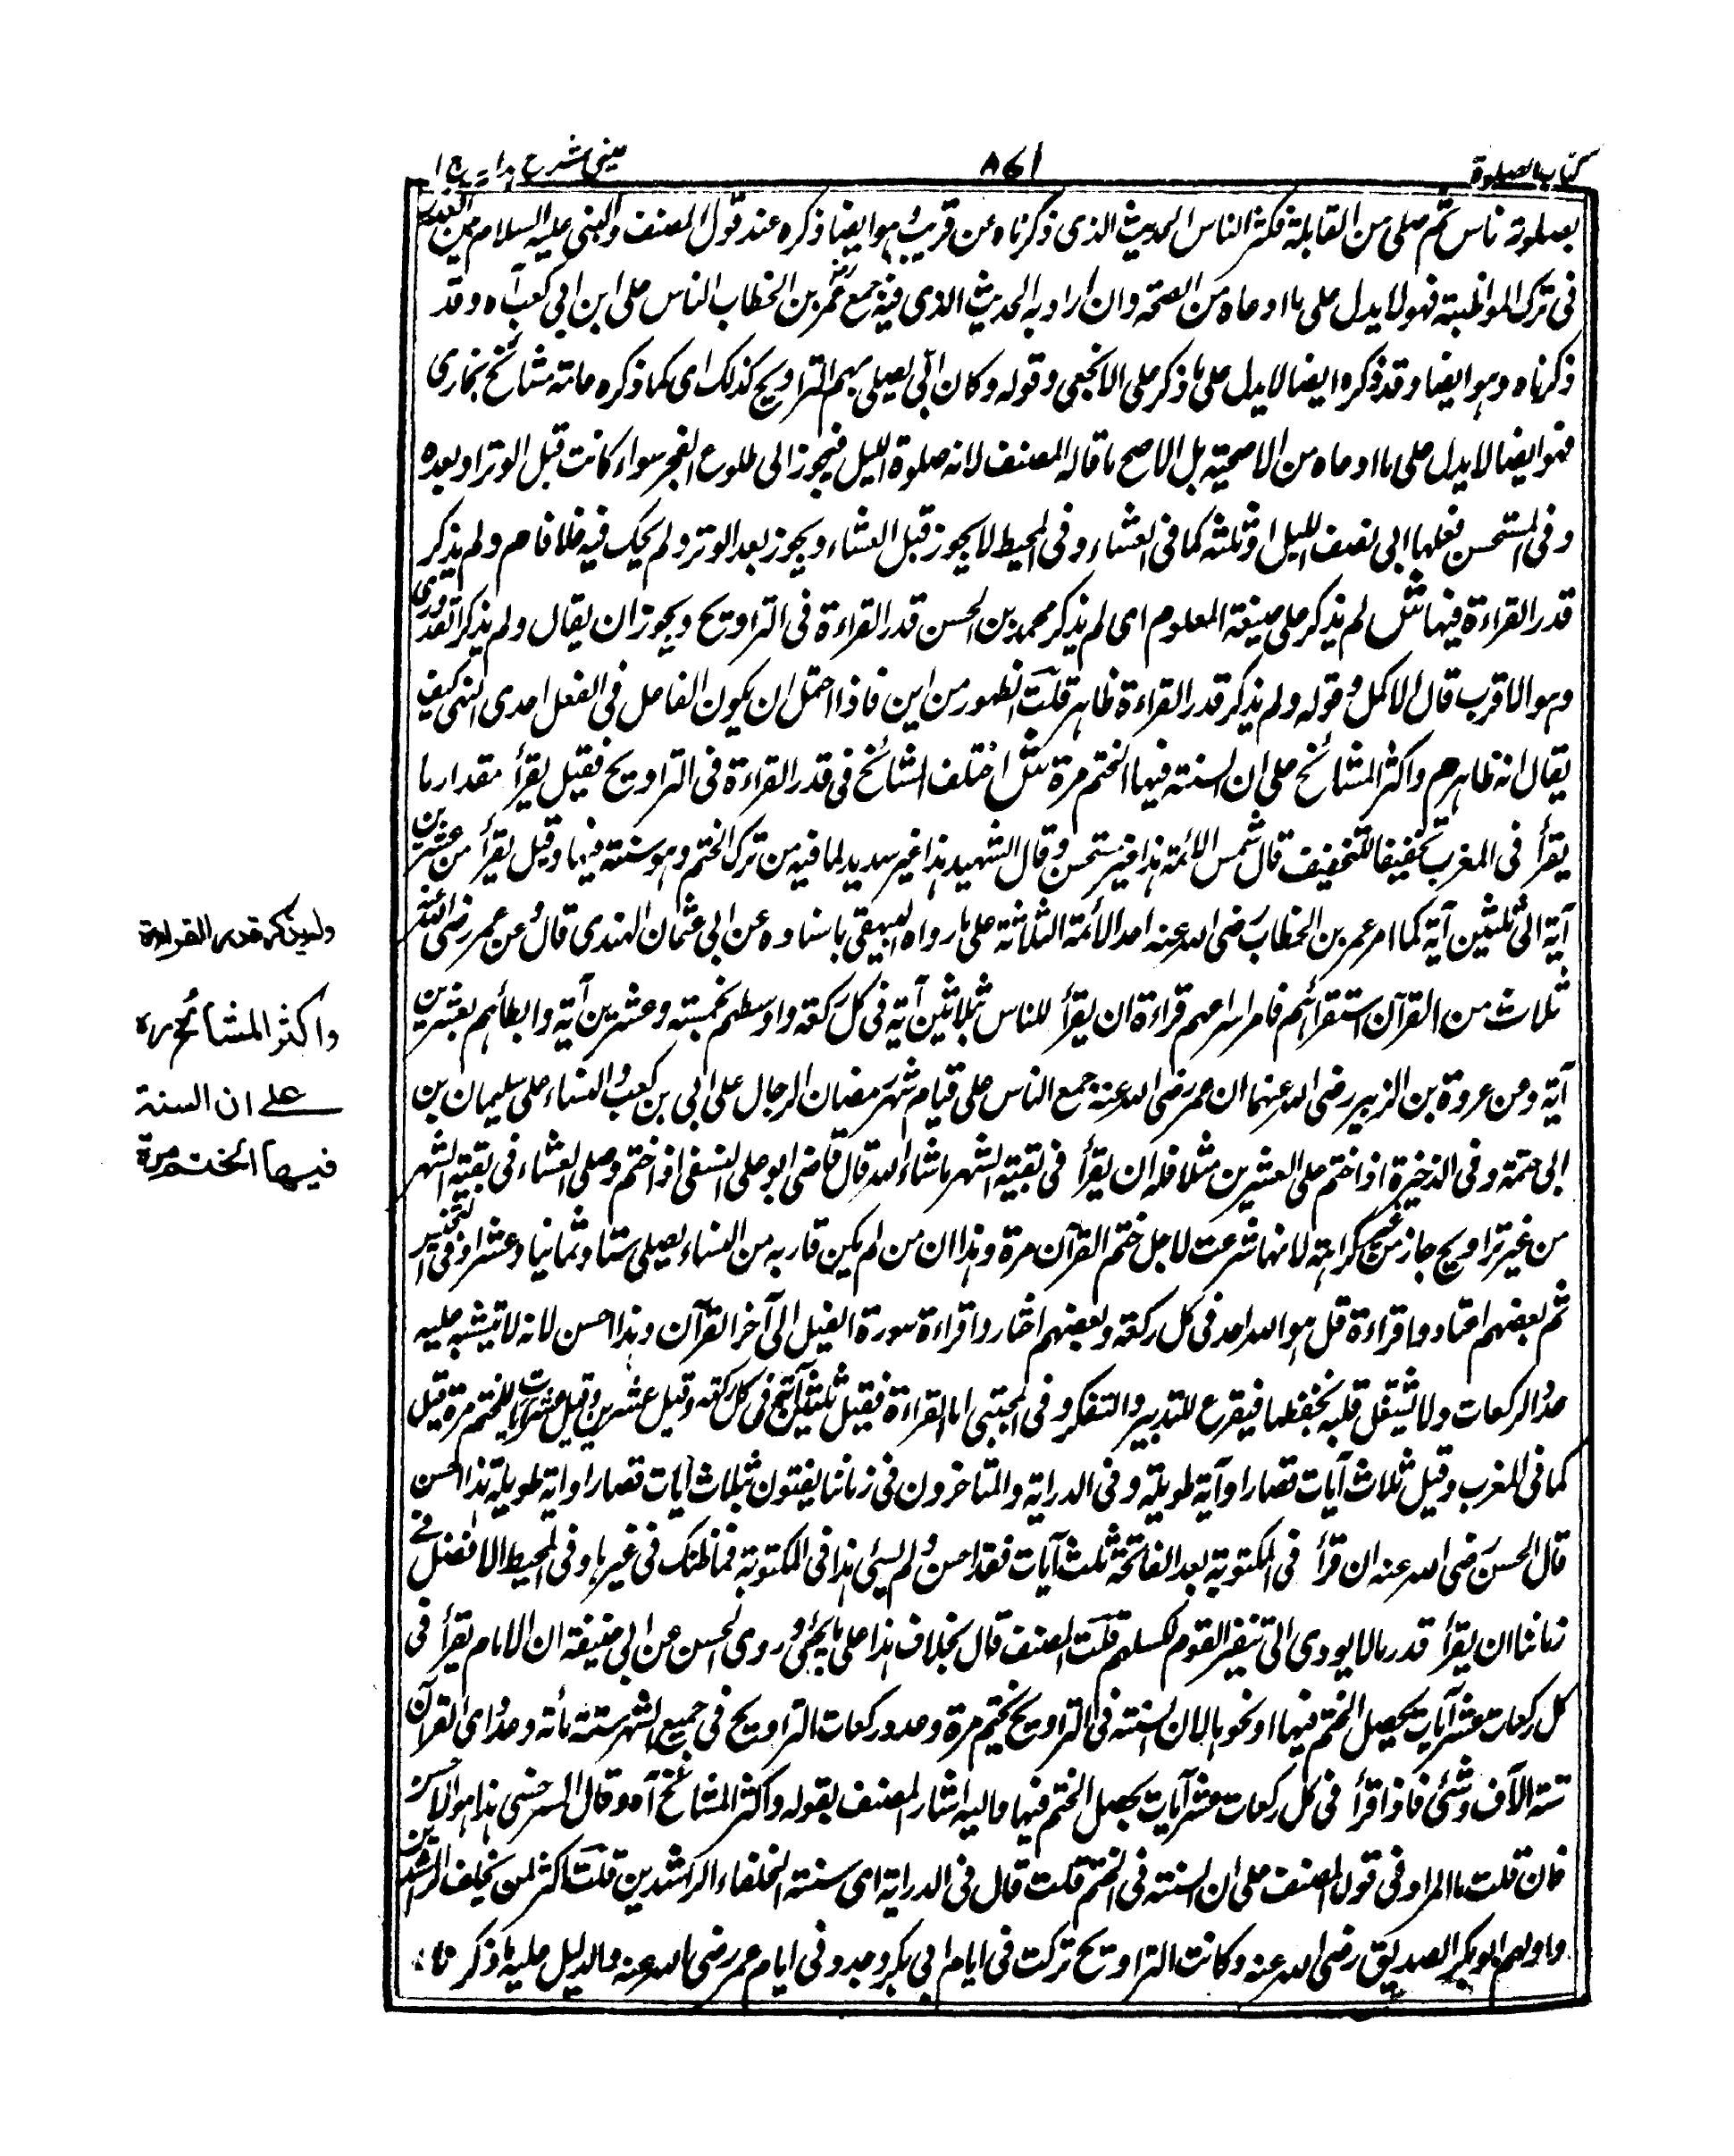 كتاب الصلوة
٨٦١
عينى شرح هدايه ج ١
بصلوته ناس ثم صلى من القابلة فكثر الناس الحديث الذى ذكرناه عن قريب وهو ايضا ذكره عند قول المصنف والنبى عليه السلام بين العذر
فى ترك المواظبة فهو لا يدل على ما ادعاه من الصحة وان اراد به الحديث الذى فيه جمع عمر بن الخطاب الناس على ابن ابي كعب آه وقد
ذكرناه وهو ايضا وقد ذكره ايضا لا يدل على ما ذكر على الانجعى وقوله وكان ابى يصلى بهم التراويح كذلك اى كما ذكره عامته مشائخ بخارى
فهو ايضا لا يدل على ما ادعاه من الاصحية بل الاصح ما قاله المصنف لانه صلوة الليل فيجوز الى طلوع الفجر سواء كانت قبل الوتر او بعده
وفى المستحسن فعلها الى نصف الليل او ثلثه كما فى العشاء وفى المحيط لا يجوز قبل العشاء ويجوز بعد الوتر ولم يحك فيه خلافا م ولم يذكر
قدر القراءة فيها ش لم يذكر على صيغة المعلوم اى لم يذكر محمد بن الحسن قدر القراءة فى التراويح ويجوز ان يقال ولم يذكر القدورى
وهو الاقرب قال الاكمل وقوله ولم يذكر قدر القراءة ظاهر قلت الظهور من اين فاذا احتمل ان يكون الفاعل فى الفعل احدى كيف
يقال انه ظاهر م واكثر المشائخ على ان السنة فيها الختم مرة ش اختلف المشائخ فى قدر القراءة فى التراويح فقيل يقرأ مقدار ما
يقرأ فى المغرب تخفيفا للتخفيف قال شمس الائمة هذا غير مستحسن وقال الشهيد هذا غير سديد لما فيه من ترك الختم وهو سنة فيها وقيل يقرأ من عشرين
آية الى ثلثين آية كما امر عمر بن الخطاب رضى الله عنه احد الائمة الثلاثة على ما رواه البيهقى باسناده عن ابى عثمان الهندى قال عن عمر رضى الله عنه
ثلاث من القرآن استقرائهم فامر اسرعهم قراءة ان يقرأ للناس ثلاثين آية فى كل ركعة واوسطهم بخمسة وعشرين آية وابطأهم بعشرين
آية وعن عروة بن الزبير رضى الله عنهما ان عمر رضى الله عنه جمع الناس على قيام شهر رمضان الرجال على ابى بن كعب والنساء على سليمان بن
ابى حثمة وفى الذخيرة اذا ختم على العشرين مثلا فله ان يقرأ فى بقية الشهر ما شاء الله قال قاضى ابو على النسفى اذا ختم وصلى العشاء فى بقية الشهر
من غير تراويح جاز من غير كراهة لانها شرعت لاجل ختم القرآن مرة وهذا ان من لم يكن قاربه من النساء يصلى ستا وثمانيا وعشرا وفى التجنيس
ثم بعضهم اعتادوا قراءة قل هو الله احد فى كل ركعة وبعضهم اختاروا قراءة سورة الفيل الى آخر القرآن وهذا احسن لانه لا يشتبه عليه
عدد الركعات ولا يشتغل قلبه بحفظها فيفرغ للتدبير والتفكر وفى المجتبى اما القراءة فقيل ثلثين آية فى كل ركعة وقيل عشرين وقيل عشر آيات للختم مرة قيل
كما فى المغرب وقيل ثلاث آيات قصار او آية طويلة وفى الدراية والمتاخرون فى زماننا يفتون بثلاث آيات قصار او اية طويلة هذا احسن
قال الحسن رضى الله عنه ان قرأ فى المكتوبة بعد الفاتحة ثلث آيات فقد احسن ولم يسئ هذا فى المكتوبة فما ظنك فى غيرها وفى المحيط الافضل فى
زماننا ان يقرأ قدر ما لا يودى الى تنفير القوم لكسلهم قلت المصنف قال بخلاف هذا على ما يجئ وروى الحسن عن ابى حنيفة ان الامام يقرأ فى
كل ركعات عشر آيات يحصل الختم فيها او نحوها لان السنة فى التراويح يختم مرة وعدد ركعات التراويح فى جميع الشهر ستة مائة وعدد آى القرآن
ستة الآف وشئ فاذا قرأ فى كل ركعات عشر آيات يحصل الختم فيها واليه اشار المصنف بقوله واكثر المشائخ آه وقال السرخسى هذا هو الاحسن
فان قلت ما المراد فى قول المصنف على ان السنة فى الختم قلت قال فى الدراية اى سنة الخلفاء الراشدين قلت اكثر لمن يخلف الراشدين
واولهم ابو بكر الصديق رضى الله عنه وكانت التراويح تركت فى ايام ابى بكر وجد وفى ايام عمر رضى الله عنه والدليل عليه ما ذكرنا
ولم يذكر قدر القراءة
واكثر المشائخ ره
على ان السنة
فيها الختم مرة